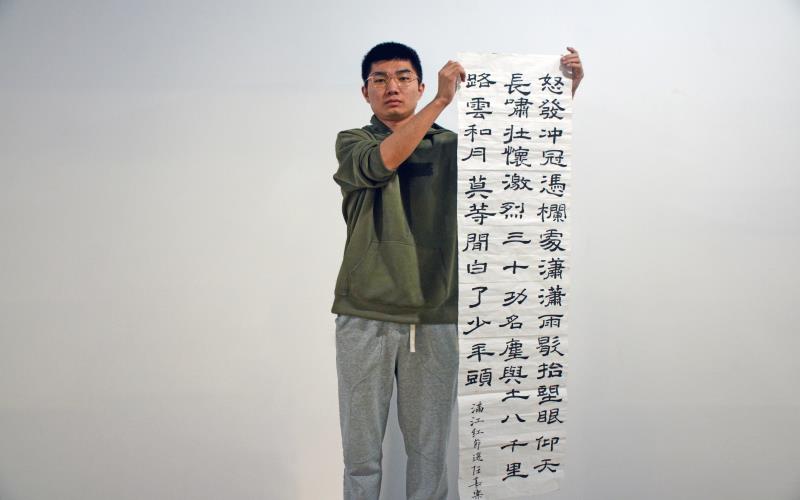 怒發冲冠憑欄處瀟瀟雨歇抬望眼仰天
長嘯壯懷激烈三十功名塵與土八千里
路雲和月莫等閒白了少年頭
滿江紅節選任